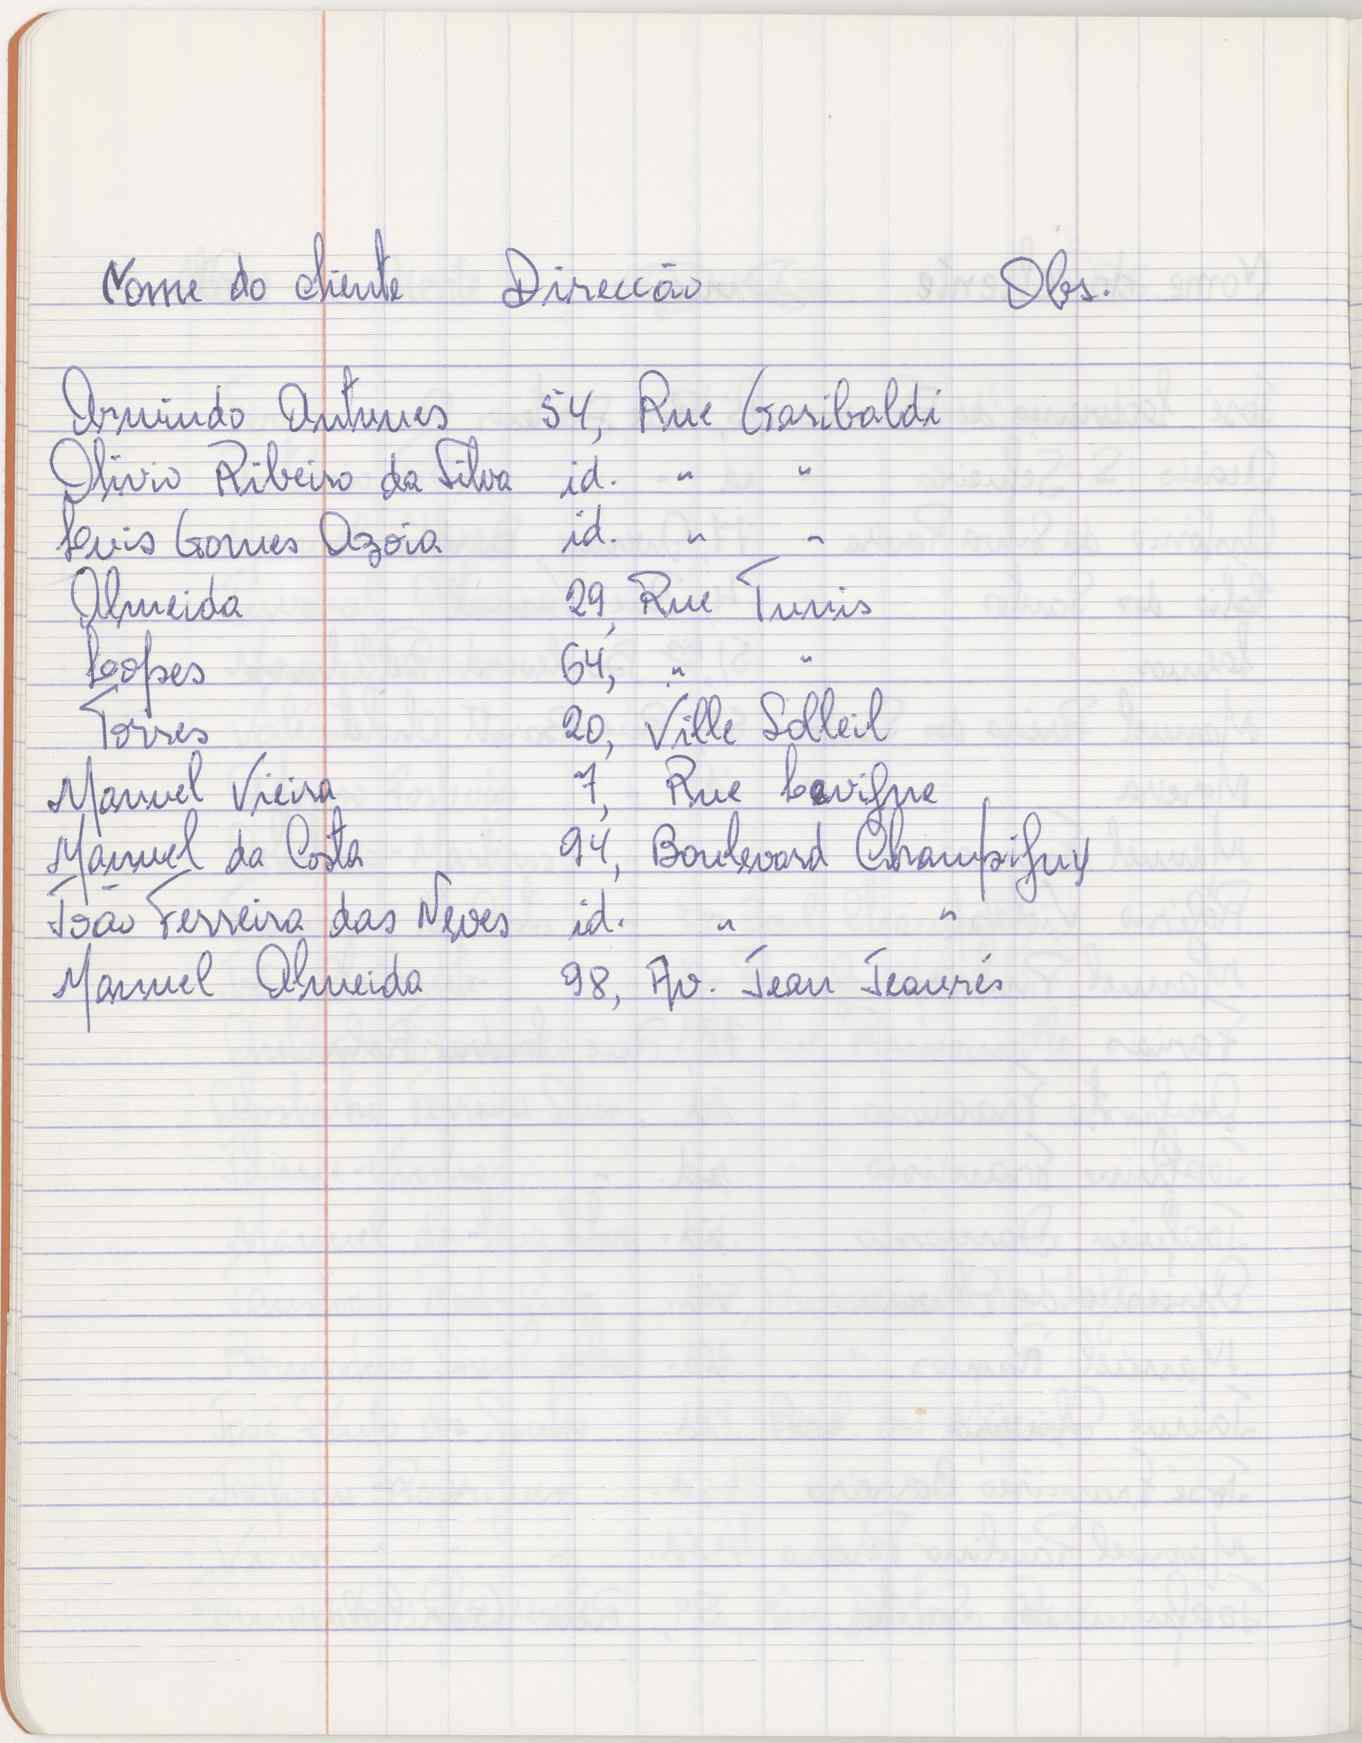 Nome do cliente Direcção Obs.
Armindo Antunes 54, Rue Garibaldi
Olivio Ribeiro da Silva id. " "
Luis Gomes Azoia id. " "
Almeida 29, Rue Tunis
Lopes 64, " "
Torres 20, Ville Solleil
Manuel Vieira 7, Rue
Manuel da Costa 94, Boulevard Champigny
João Ferreira das Neves id. " "
Manuel Almeida 98, Av. Jean Jeaurés